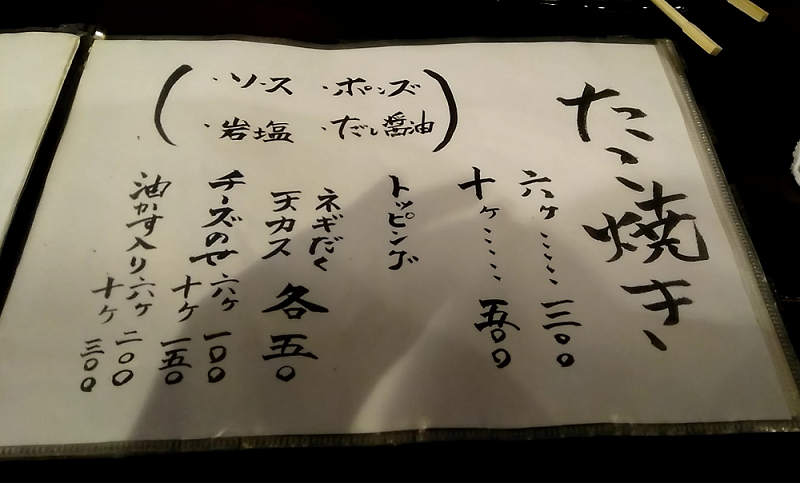 たこ焼き
六ヶ・・・・・三〇〇
十ヶ・・・・・五〇〇
トッピング
ネギだく
天カス 各五〇
チーズのせ 六ヶ 一〇〇
十ヶ 一五〇
油かす入り 六ヶ 二〇〇
十ヶ 三〇〇
(・ソース ・ポンズ
・岩塩 ・だし醤油)